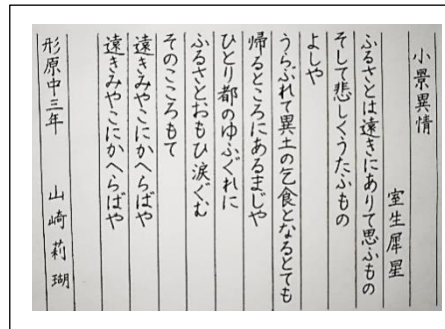 小景異情
室生犀星
ふるさとは遠きにありて思ふもの
そして悲しくうたふもの
よしや
うらぶれて異土の乞食となるとても
帰るところにあるまじや
ひとり都のゆふぐれに
ふるさとおもひ涙ぐむ
そのこころもて
遠きみやこにかへらばや
遠きみやこにかへらばや
形原中三年 山崎莉瑚